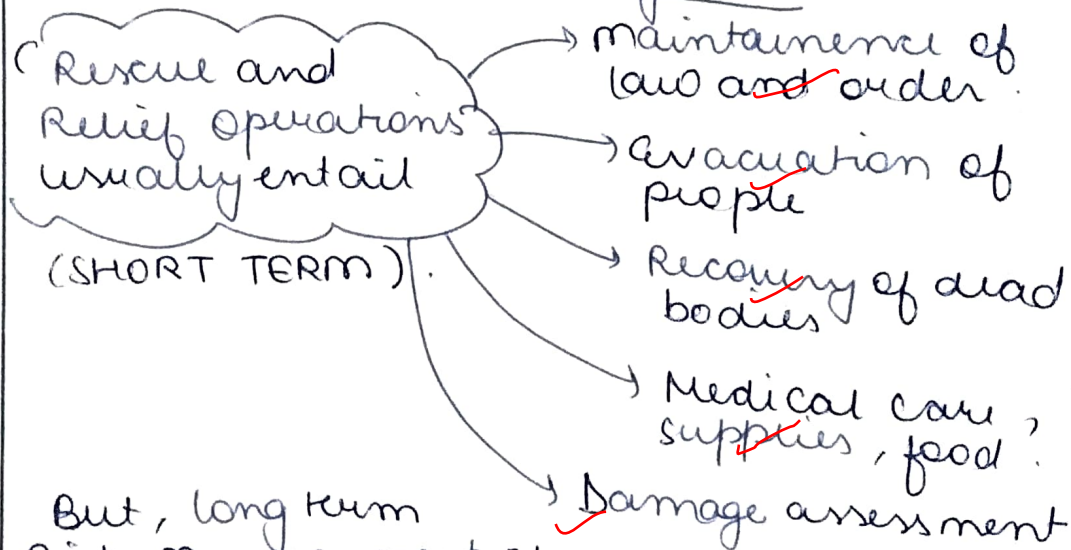 Rescue and
Relief operations
usually entail
(SHORT TERM).
maintainence of
law and order.
evacuation of
people
Recovery of dead
bodies
Medical care,
supplies, food.
Damage assessment
But, long term